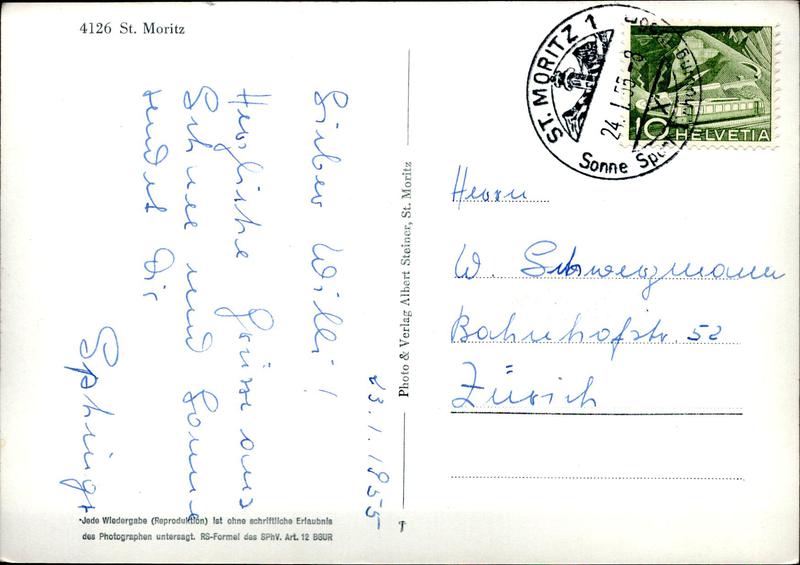 4126 St. Moritz
Lieber Willi!
Herzliche Grüsse aus
Schnee und Sonne
sendet Dir
23.1.1955
Photo & Verlag Albert Steiner, St. Moritz
ST. MORITZ 1
24. I. 55 - 8
Sonne
10 HELVETIA
Herrn
W. Schwerzmann
Bahnhofstr. 52
Zürich
Jede Wiedergabe (Reproduktion) ist ohne schriftliche Erlaubnis
des Photographen untersagt. RS-Formel des SPhV. Art. 12 BGUR